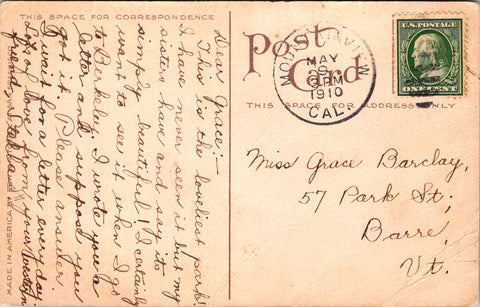 THIS SPACE FOR CORRESPONDENCE
Dear Grace:-
This is the loveliest park!
I have never seen it but my
sisters have and say it's
simply beautiful! I certainly
want to see it when I go
to Berkeley. I wrote you a
letter and suppose you
got it. Please answer
I wait for a letter every day.
Lots of love from your Western
friend,
MADE IN AMERICA BY
Post Card
THIS SPACE FOR ADDRESS ONLY
MOUNTAIN VIEW
MAY
9
3 PM
1910
CAL.
U.S. POSTAGE
ONE CENT
Miss Grace Barclay,
57 Park St.,
Barre,
Vt.